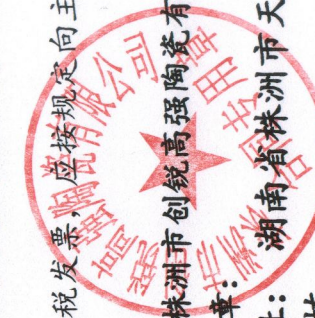 税发票,应按规定向主
株洲市创锐高强陶瓷有
章:
址: 湖南省株洲市天
株洲市创锐高强陶瓷有限公司
合同专用章